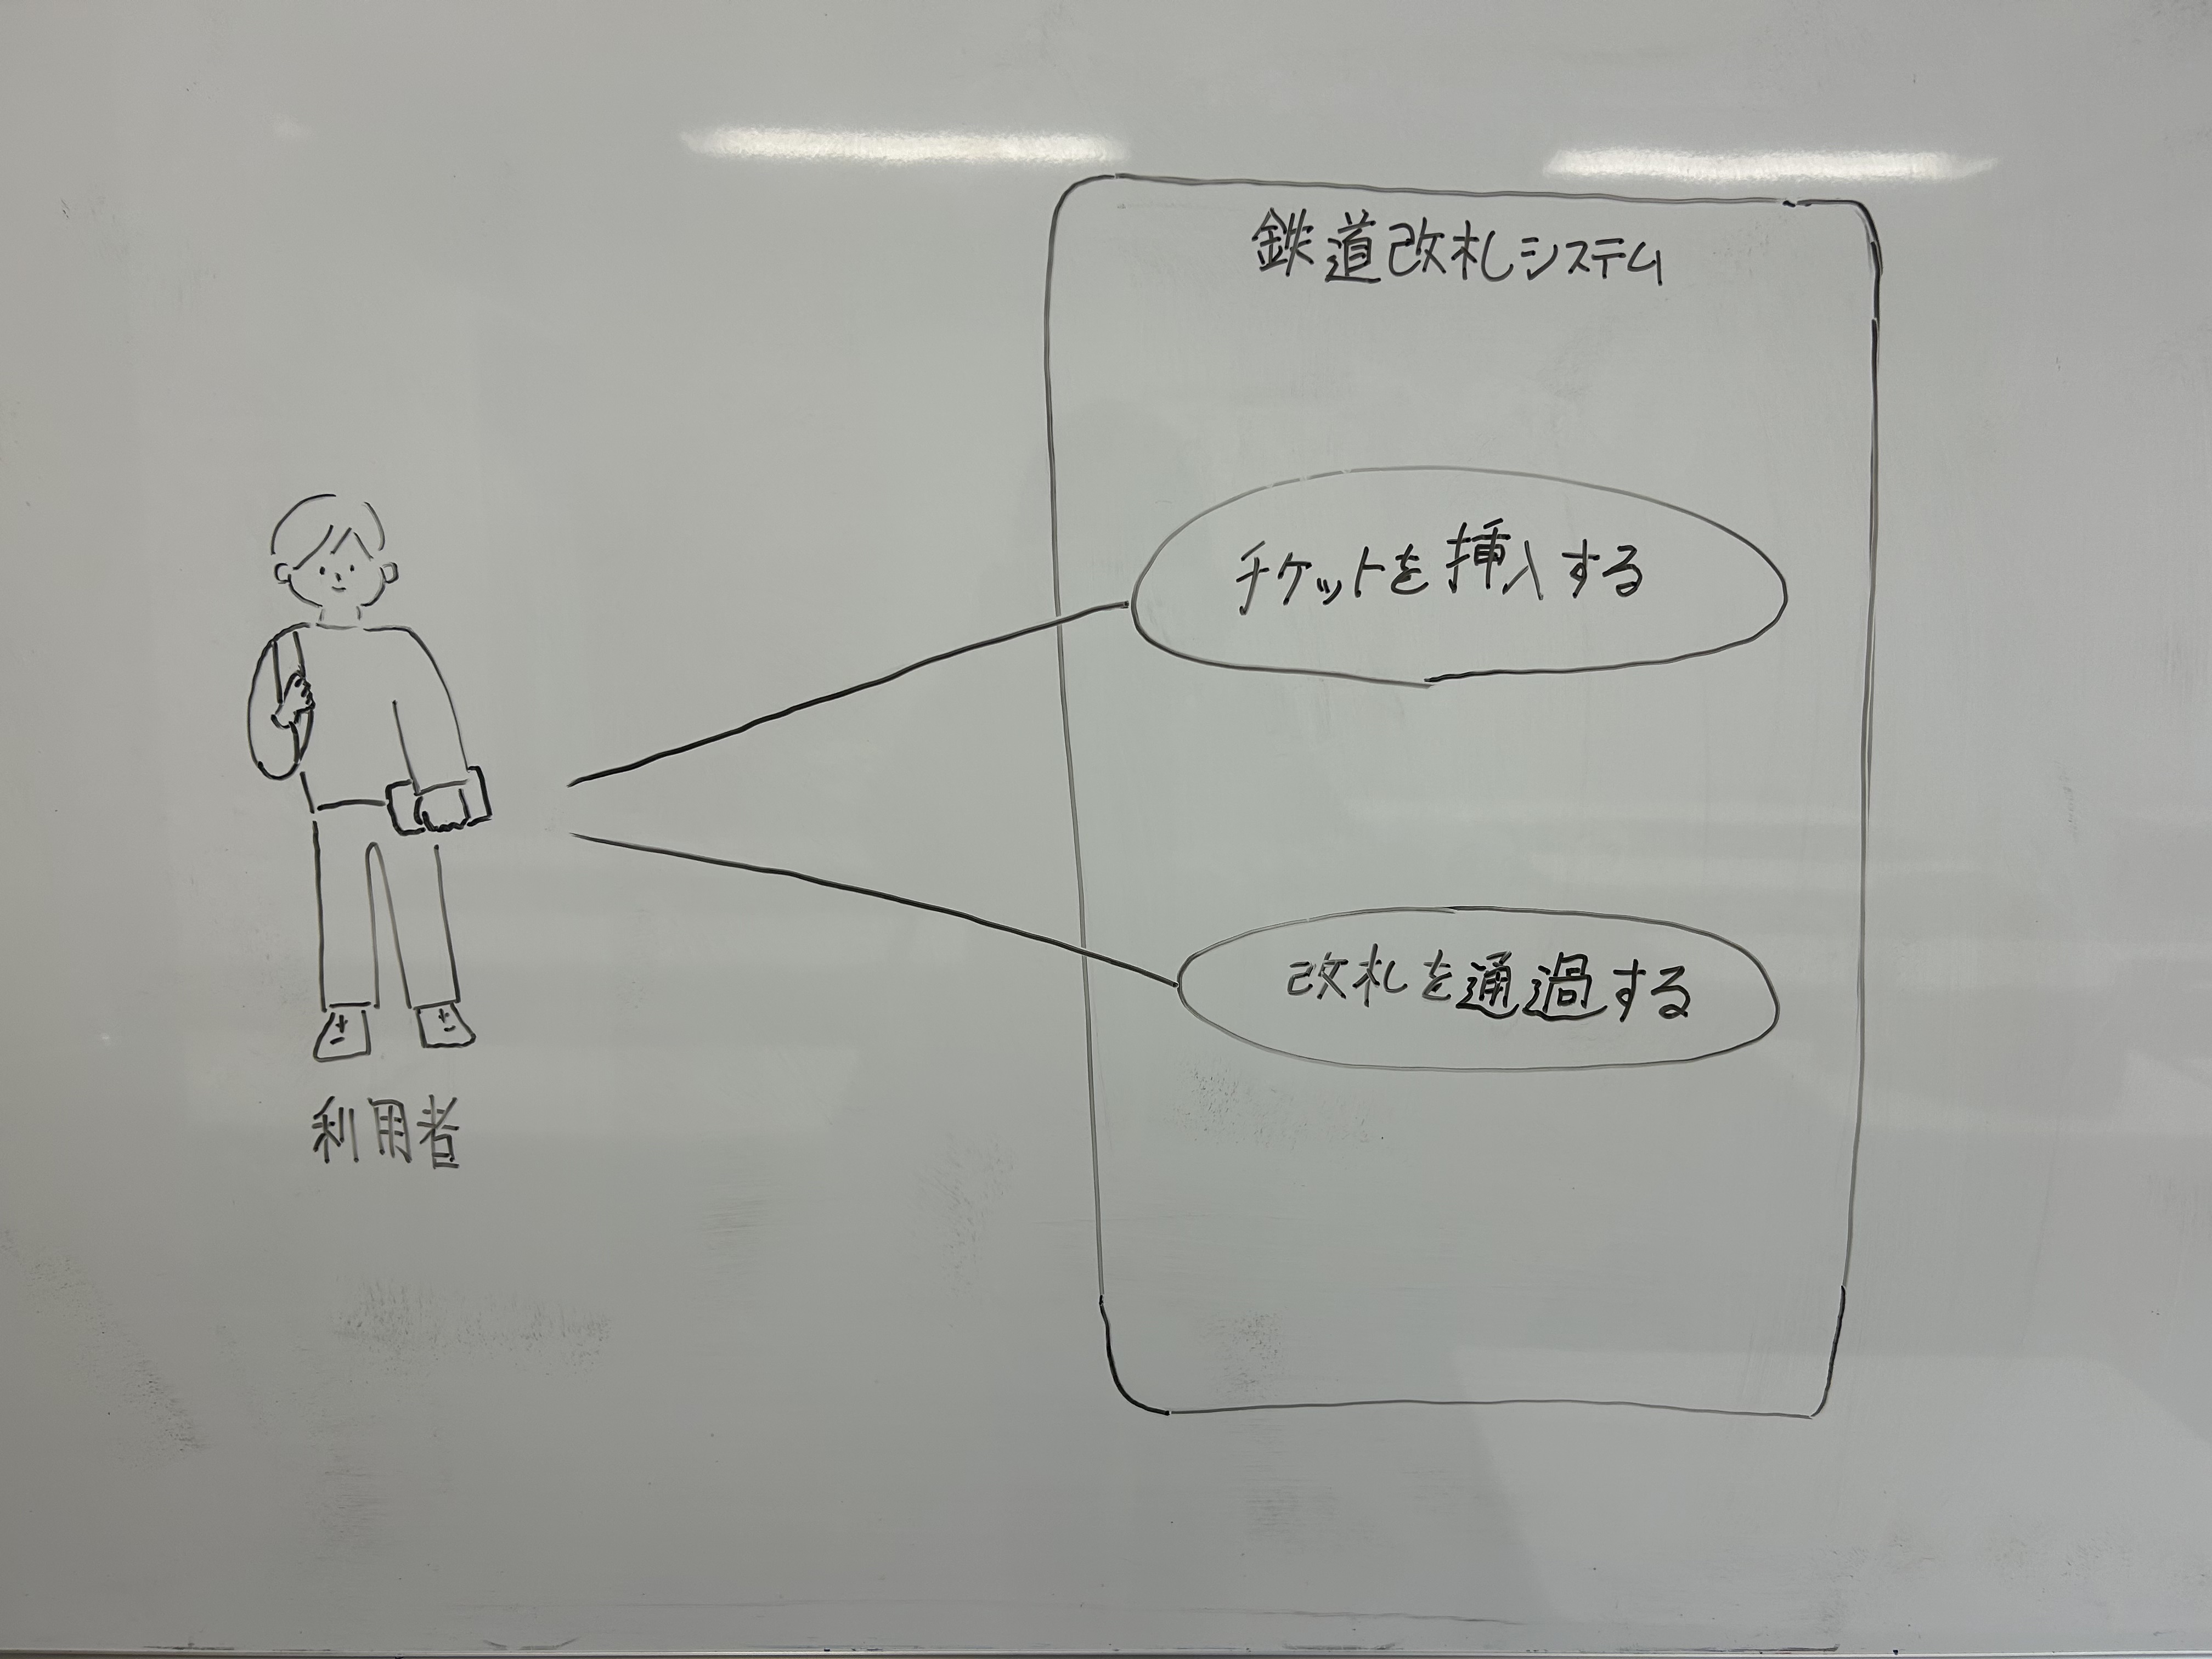 鉄道改札システム
チケットを挿入する
改札を通過する
利用者